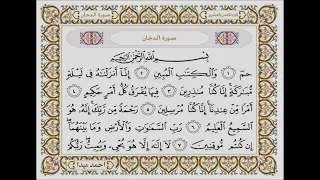 سورة الدخان
سورة الدخان
بِسْمِ اللَّهِ الرَّحْمَٰنِ الرَّحِيمِ
حمٓ ١ وَالْكِتَٰبِ الْمُبِينِ ٢ إِنَّآ أَنزَلْنَٰهُ فِى لَيْلَةٍ
مُّبَٰرَكَةٍ إِنَّا كُنَّا مُنذِرِينَ ٣ فِيهَا يُفْرَقُ كُلُّ أَمْرٍ حَكِيمٍ ٤
أَمْرًا مِّنْ عِندِنَآ إِنَّا كُنَّا مُرْسِلِينَ ٥ رَحْمَةً مِّن رَّبِّكَ إِنَّهُ هُوَ
السَّمِيعُ الْعَلِيمُ ٦ رَبِّ السَّمَٰوَٰتِ وَالْأَرْضِ وَمَا بَيْنَهُمَآ
إِن كُنتُم مُّوقِنِينَ ٧ لَآ إِلَٰهَ إِلَّا هُوَ يُحْىِۦ وَيُمِيتُ رَبُّكُمْ